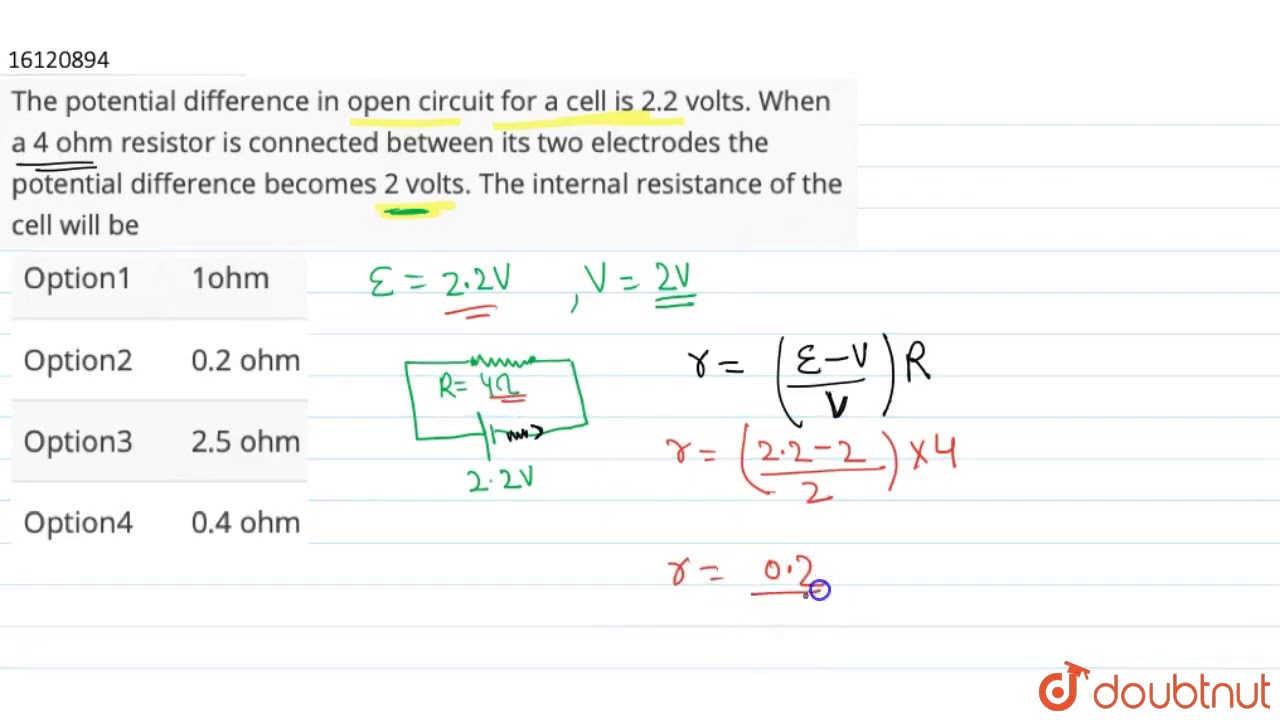 16120894
The potential difference in open circuit for a cell is 2.2 volts. When
a 4 ohm resistor is connected between its two electrodes the
potential difference becomes 2 volts. The internal resistance of the
cell will be
Option1 1ohm
Option2 0.2 ohm
Option3 2.5 ohm
Option4 0.4 ohm
ε = 2.2V , V = 2V
R = 4Ω
2.2V
r = (ε-V/V) R
r = (2.2-2/2) × 4
r = 0.2
doubtnut